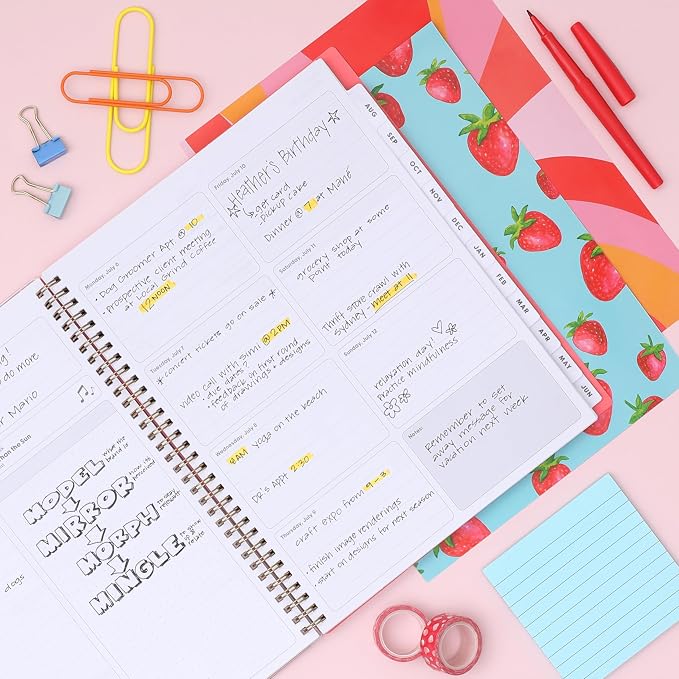 do more
Mario
the Sun
MODEL
MIRROR
MORPH
to stay
MINGLE
to grow
relate
dogs
Monday, July 6
Dog Groomer Apt @ 10
Prospective client meeting
at Local Grind Coffee
12 NOON
Tuesday, July 7
* concert tickets go on sale *
video call with Simi @ 2PM
- due dates?
- feedback on first round
of drawings + designs
Wednesday, July 8
9AM Yoga on the beach
DR's Appt 2:30
Thursday, July 9
craft expo from 9 - 3
- finish image renderings
- start on designs for next season
Friday, July 10
Heather's Birthday
get card
- pickup cake
Dinner @ 7 at Mahé
Saturday, July 11
grocery shop at some
point today
Thrift store crawl with
Sydney - meet at 11
Sunday, July 12
relaxation day!
practice mindfulness
Notes:
Remember to set
away message for
vacation next week
AUG
SEP
OCT
NOV
DEC
JAN
FEB
MAR
APR
MAY
JUN